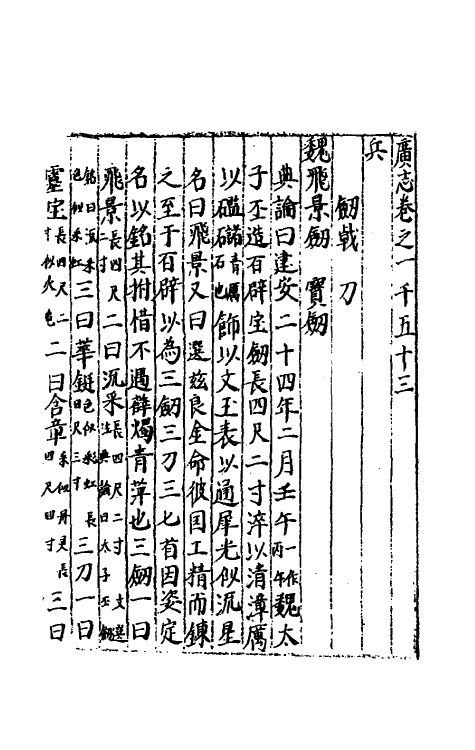 廣志卷之一千五十三
兵
劒戟 刀
魏飛景劒 寶劒
典論曰建安二十四年二月壬午一作丙午魏太
子丕造百辟宝劒長四尺二寸淬以清漳厲
以礛䃴青礪石也飾以文玉表以通犀光似流星
名曰飛景又曰選兹良金命彼国工精而鍊
之至于百辟以為三劒三刀三匕首因姿定
名以銘其拊惜不遇薛燭青萍也三劒一曰
飛景長四尺二寸二曰流采長四尺二寸 文選注典論曰太子丕劒
銘曰流采色似采虹三曰華鋌色似彩虹長四尺三寸三刀一曰
靈宝長四尺二寸似火色二曰含章采似丹霞長四尺四寸三曰